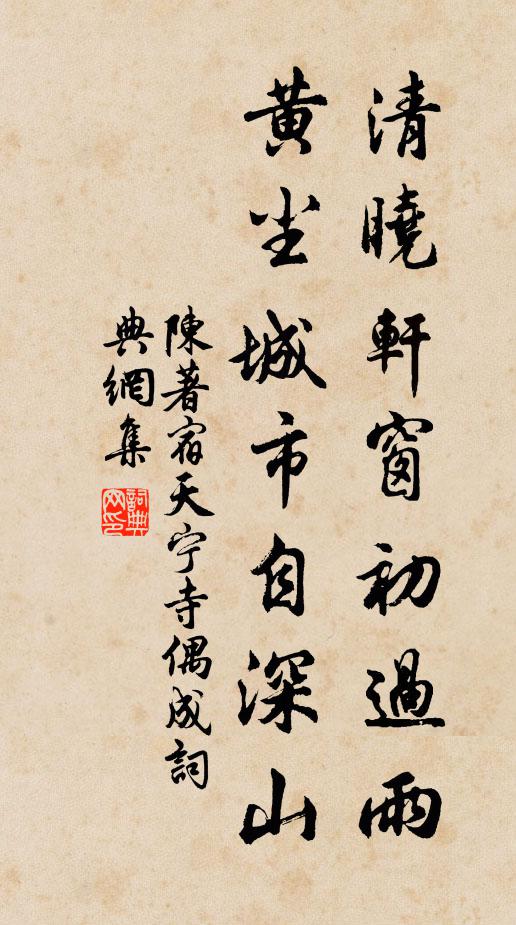 清曉軒窗初過雨
黄尘城市自深山
陳著宿天宁寺偶成詞
典網集
詞典网印